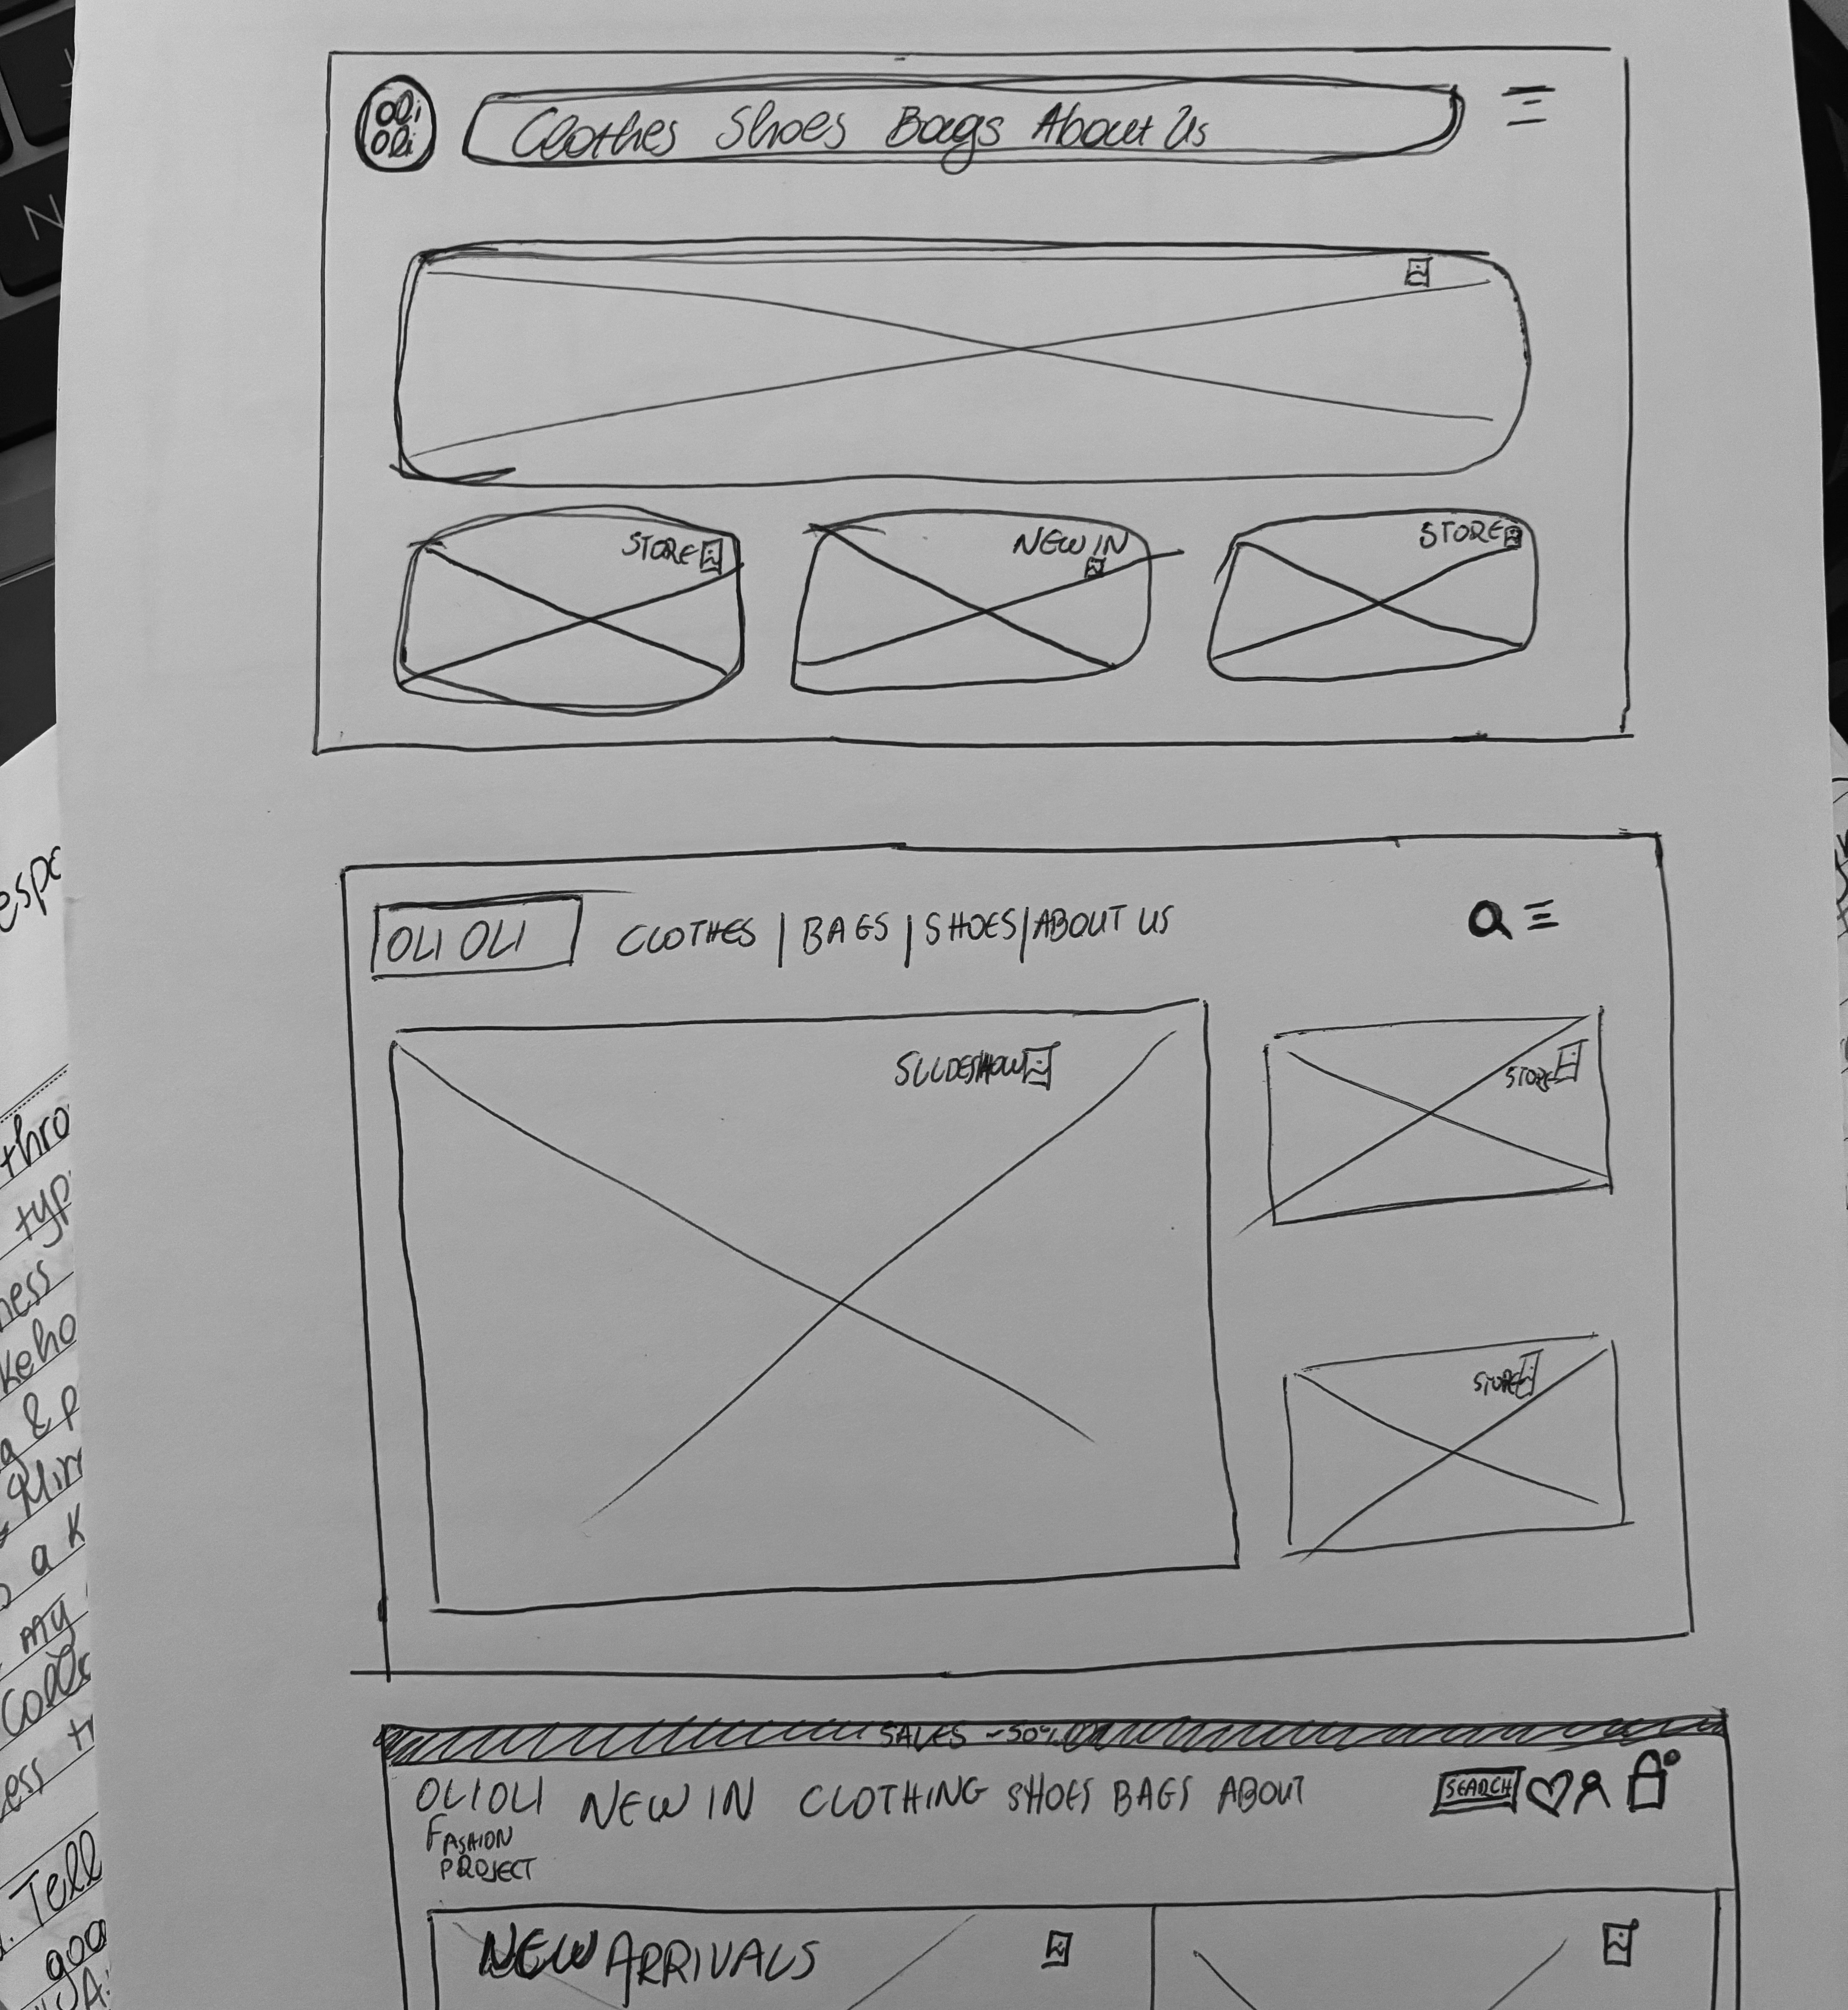 N
Oli
Oli
Clothes Shoes Bags About Us
STORE
NEW IN
STORE
OLI OLI
CLOTHES | BAGS | SHOES | ABOUT US
SLIDESHOW
STORE
STORE
SALES -50%
OLIOLI NEW IN CLOTHING SHOES BAGS ABOUT
SEARCH
FASHION
PROJECT
NEW ARRIVALS
thro
typ
ness
keho
& P
a K
my
ess
Tell
goo